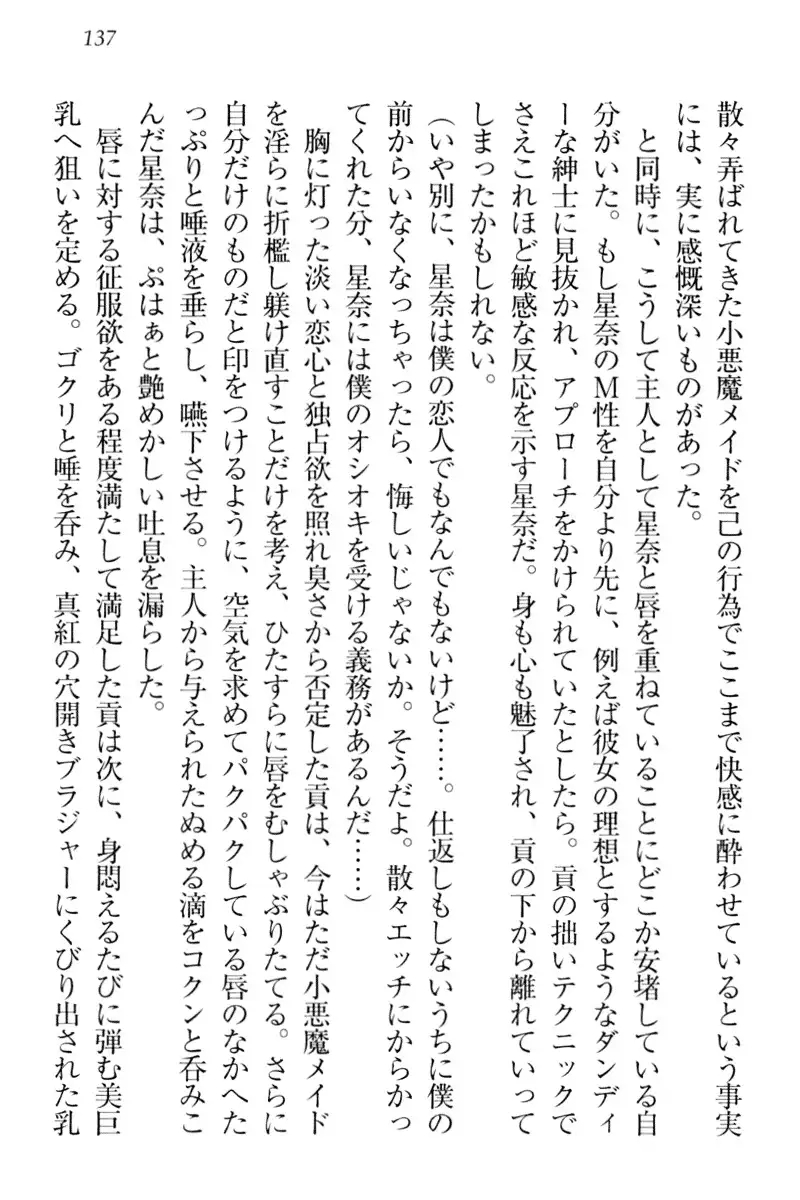 137
散々弄ばれてきた小悪魔メイドを己の行為でここまで快感に酔わせているという事実
には、実に感慨深いものがあった。
と同時に、こうして主人として星奈と唇を重ねていることにどこか安堵している自
分がいた。もし星奈のＭ性を自分より先に、例えば彼女の理想とするようなダンディ
ーな紳士に見抜かれ、アプローチをかけられていたとしたら。貢の拙いテクニックで
さえこれほど敏感な反応を示す星奈だ。身も心も魅了され、貢の下から離れていって
しまったかもしれない。
（いや別に、星奈は僕の恋人でもなんでもないけど……。仕返しもしないうちに僕の
前からいなくなっちゃったら、悔しいじゃないか。そうだよ。散々エッチにからかっ
てくれた分、星奈には僕のオシオキを受ける義務があるんだ……）
胸に灯った淡い恋心と独占欲を照れ臭さから否定した貢は、今はただ小悪魔メイド
を淫らに折檻し躾け直すことだけを考え、ひたすらに唇をむしゃぶりたてる。さらに
自分だけのものだと印をつけるように、空気を求めてパクパクしている唇のなかへた
っぷりと唾液を垂らし、嚥下させる。主人から与えられたぬめる滴をコクンと呑みこ
んだ星奈は、ぷはぁと艶めかしい吐息を漏らした。
唇に対する征服欲をある程度満たして満足した貢は次に、身悶えるたびに弾む美巨
乳へ狙いを定める。ゴクリと唾を呑み、真紅の穴開きブラジャーにくびり出された乳